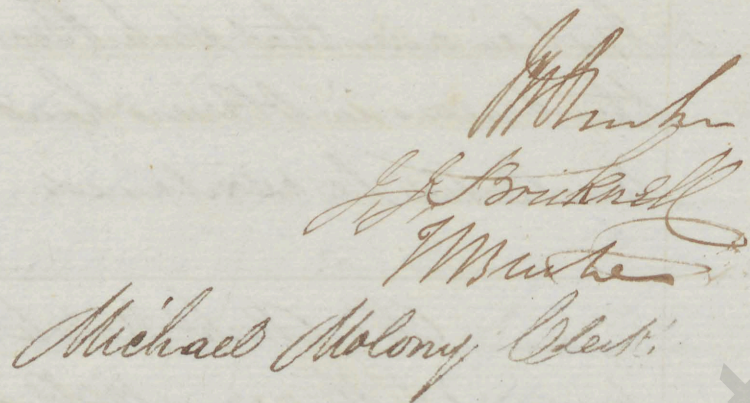 J J Bricknell
W Burke
Michael Molony Clerk.